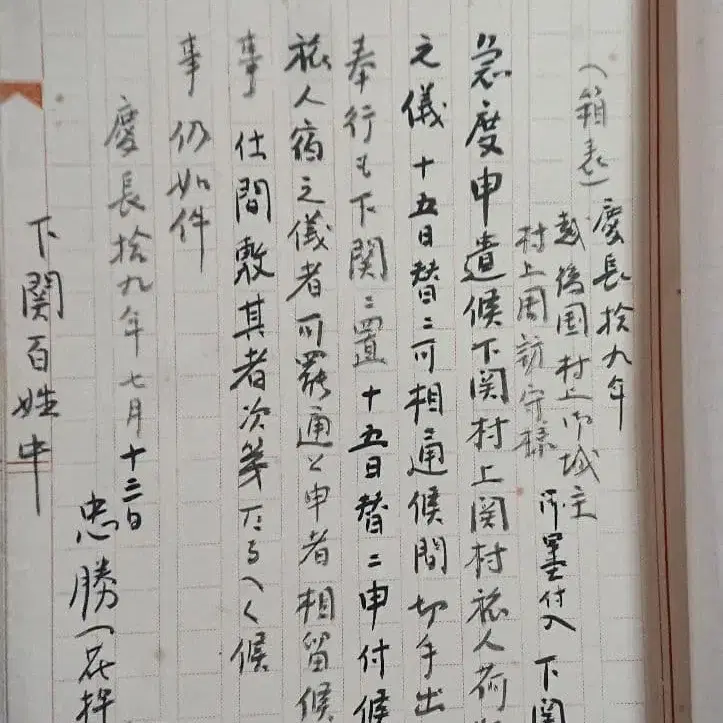 （箱表）慶長拾九年
越後国村上御城主
村上周防守様 御墨付入 下関
急度申遣候下関村上関村旅人荷
之儀 十五日替ニ可相通候間切手出
奉行も下関ニ置 十五日替ニ申付候
旅人宿之儀者可罷通と申者相留候
事 仕間敷其者次第たるへく候
事 仍如件
慶長拾九年七月十三日
忠勝（花押
下関百姓中